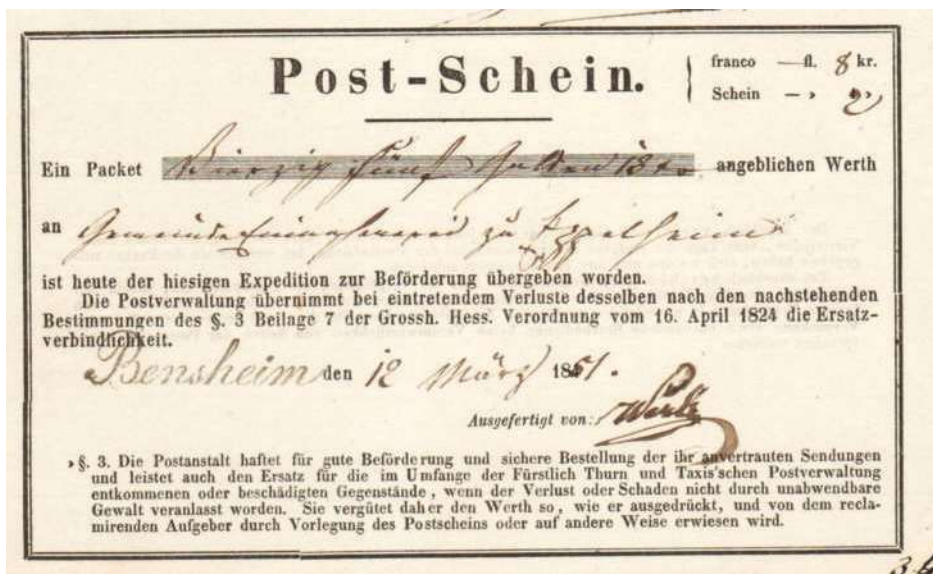 Post-Schein.
franco — fl. 8 kr.
Schein — » 2 »
Ein Packet Vierzig fünf Gulden 18 xr angeblichen Werth
an Gemeinde Einnehmerei zu Eppelsheim
ist heute der hiesigen Expedition zur Beförderung übergeben worden.
Die Postverwaltung übernimmt bei eintretendem Verluste desselben nach den nachstehenden
Bestimmungen des §. 3 Beilage 7 der Grossh. Hess. Verordnung vom 16. April 1824 die Ersatz-
verbindlichkeit.
Bensheim den 12 März 1851.
Ausgefertigt von:
»§. 3. Die Postanstalt haftet für gute Beförderung und sichere Bestellung der ihr anvertrauten Sendungen
und leistet auch den Ersatz für die im Umfange der Fürstlich Thurn und Taxis'schen Postverwaltung
entkommenen oder beschädigten Gegenstände, wenn der Verlust oder Schaden nicht durch unabwendbare
Gewalt veranlasst worden. Sie vergütet daher den Werth so, wie er ausgedrückt, und von dem recla-
mirenden Aufgeber durch Vorlegung des Postscheins oder auf andere Weise erwiesen wird.